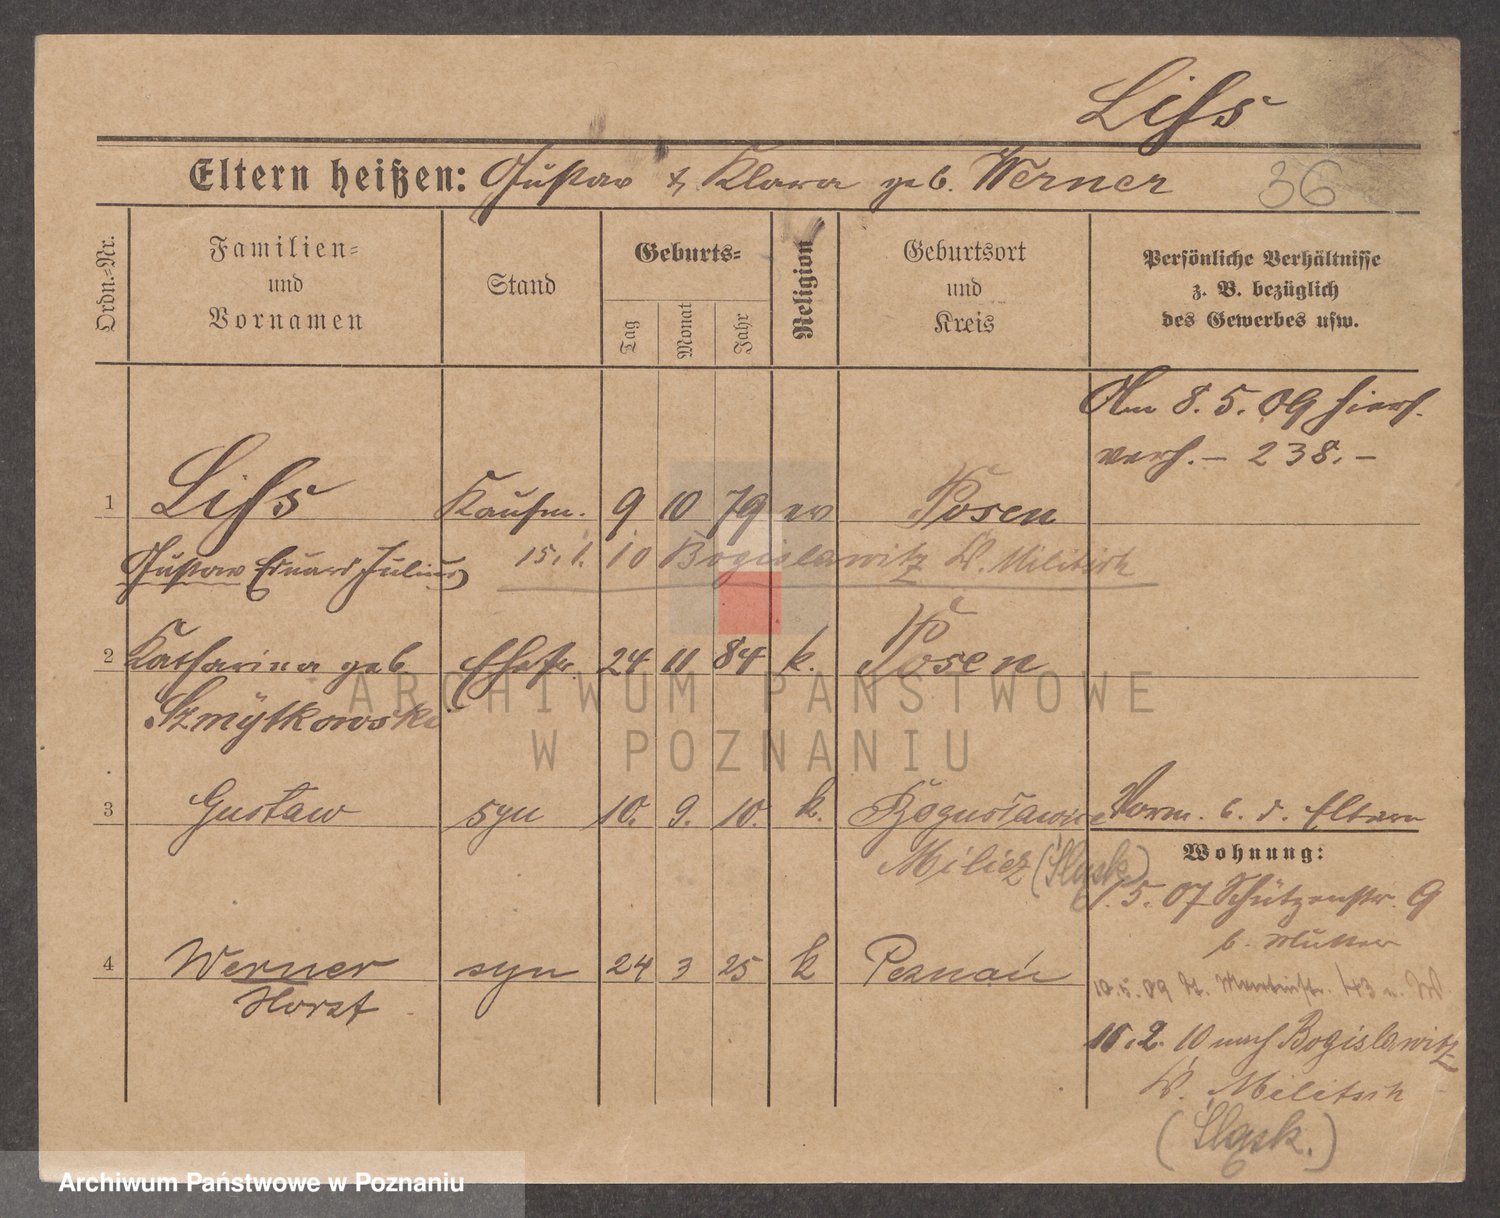 Liss
Eltern heißen: Gustav & Klara geb. Werner 36
Ordn.=Nr.
Familien=
und
Vornamen
Stand
Geburts=
Tag
Monat
Jahr
Religion
Geburtsort
und
Kreis
Persönliche Verhältnisse
z. B. bezüglich
des Gewerbes usw.
Am 8. 5. 09 hiers.
verh. – 238. –
1 Liss Kaufm. 9 10 79 ev Posen
Gustav Eduard Julius 15. 1. 10 Bogislawitz Kr. Militsch
2 Katharina geb. Ehefr. 24 11 84 k. Posen
Szmytkowski
3 Gustaw syn 10. 9. 10. k. Bogusławice Vorm. b. d. Eltern
Milicz (Śląsk)
Wohnung:
1. 5. 07 Schützenstr. 9
b. Mutter
4 Werner syn 24 3 25 k Poznań
Horst
10. 5. 09 St. Martinstr. 43 n. W.
15. 2. 10 nach Bogislawitz
Kr. Militsch
(Śląsk.)
ARCHIWUM PAŃSTWOWE
W POZNANIU
Archiwum Państwowe w Poznaniu